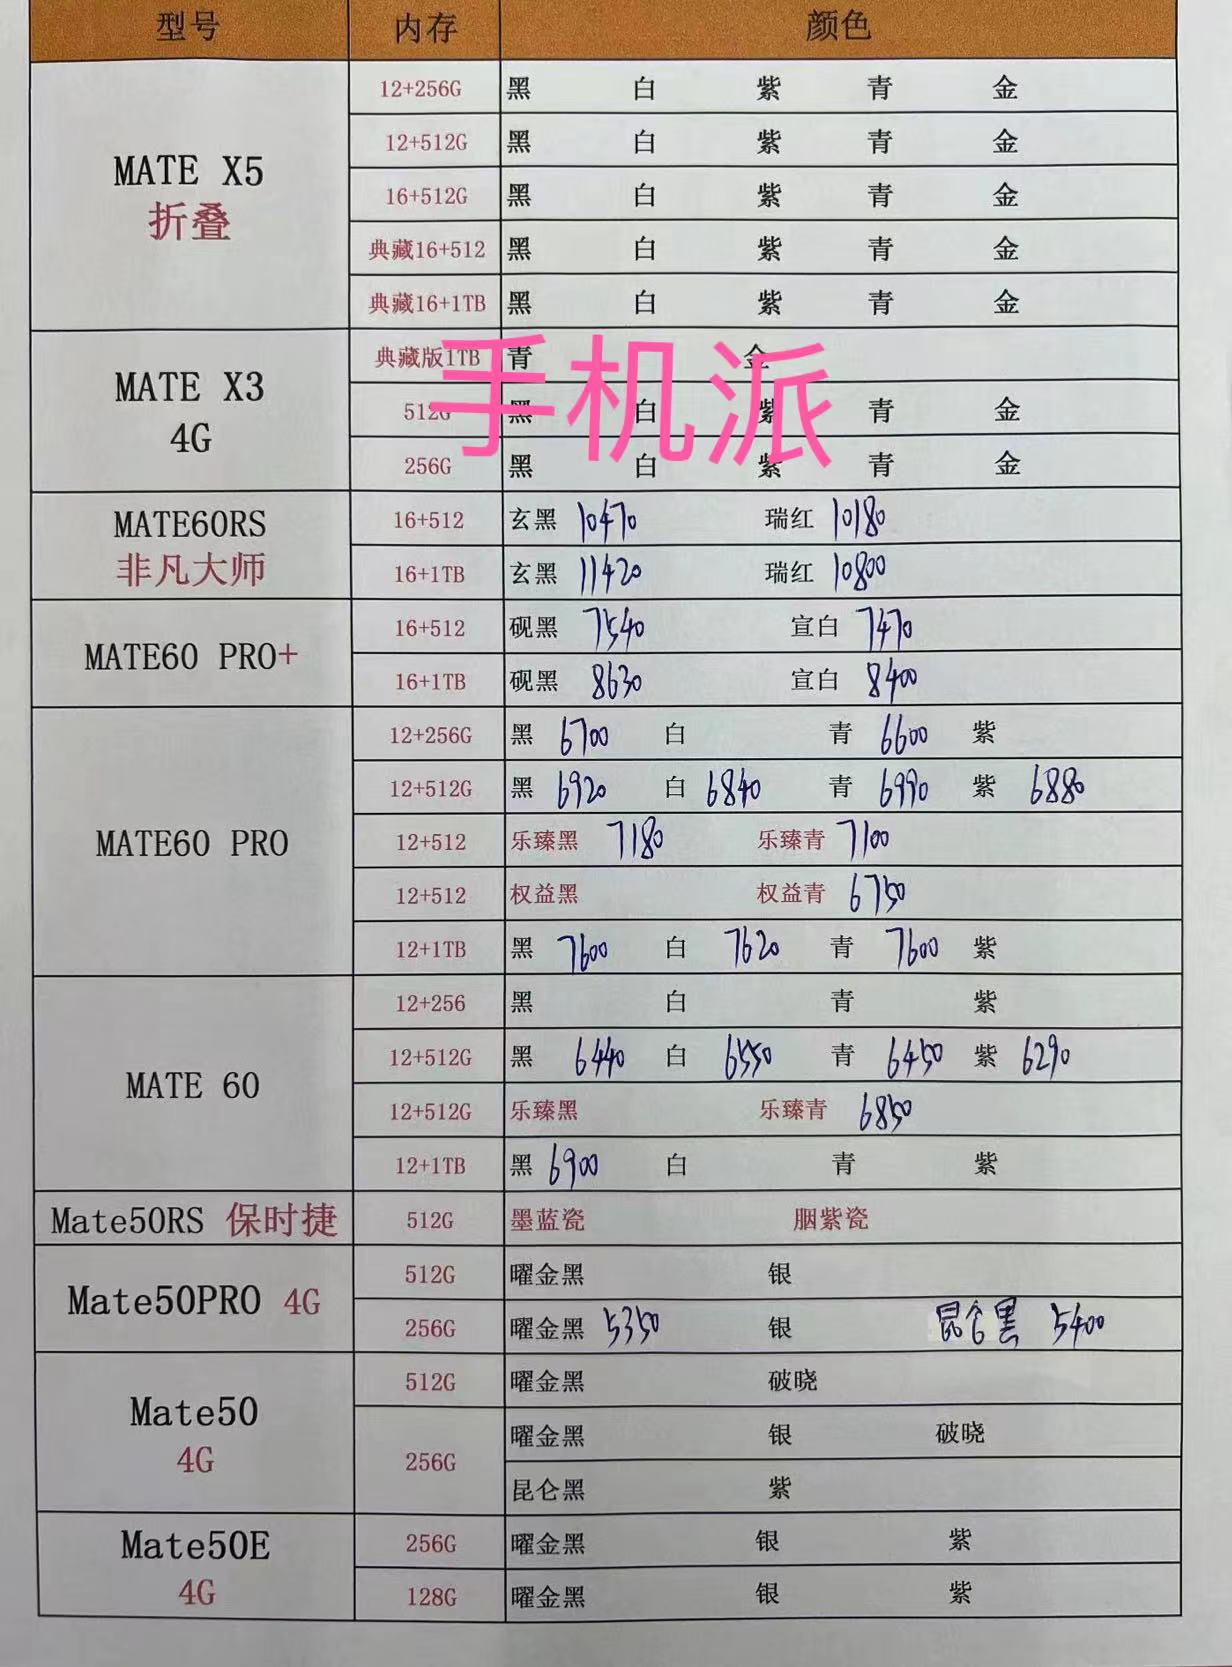 型号 内存 颜色
MATE X5
折叠
12+256G 黑 白 紫 青 金
12+512G 黑 白 紫 青 金
16+512G 黑 白 紫 青 金
典藏16+512 黑 白 紫 青 金
典藏16+1TB 黑 白 紫 青 金
手机派
MATE X3
4G
典藏版1TB 青 金
512G 黑 白 紫 青 金
256G 黑 白 紫 青 金
MATE60RS
非凡大师
16+512 玄黑 10470 瑞红 10180
16+1TB 玄黑 11420 瑞红 10800
MATE60 PRO+
16+512 砚黑 7540 宣白 7470
16+1TB 砚黑 8630 宣白 8400
MATE60 PRO
12+256G 黑 6700 白 青 6600 紫
12+512G 黑 6920 白 6840 青 6990 紫 6880
12+512 乐臻黑 7180 乐臻青 7100
12+512 权益黑 权益青 6750
12+1TB 黑 7600 白 7620 青 7600 紫
MATE 60
12+256 黑 白 青 紫
12+512G 黑 6440 白 6550 青 6450 紫 6290
12+512G 乐臻黑 乐臻青 6850
12+1TB 黑 6900 白 青 紫
Mate50RS 保时捷 512G 墨蓝瓷 胭紫瓷
Mate50PRO 4G
512G 曜金黑 银
256G 曜金黑 5350 银 昆仑黑 5400
Mate50
4G
512G 曜金黑 破晓
256G 曜金黑 银 破晓
昆仑黑 紫
Mate50E
4G
256G 曜金黑 银 紫
128G 曜金黑 银 紫